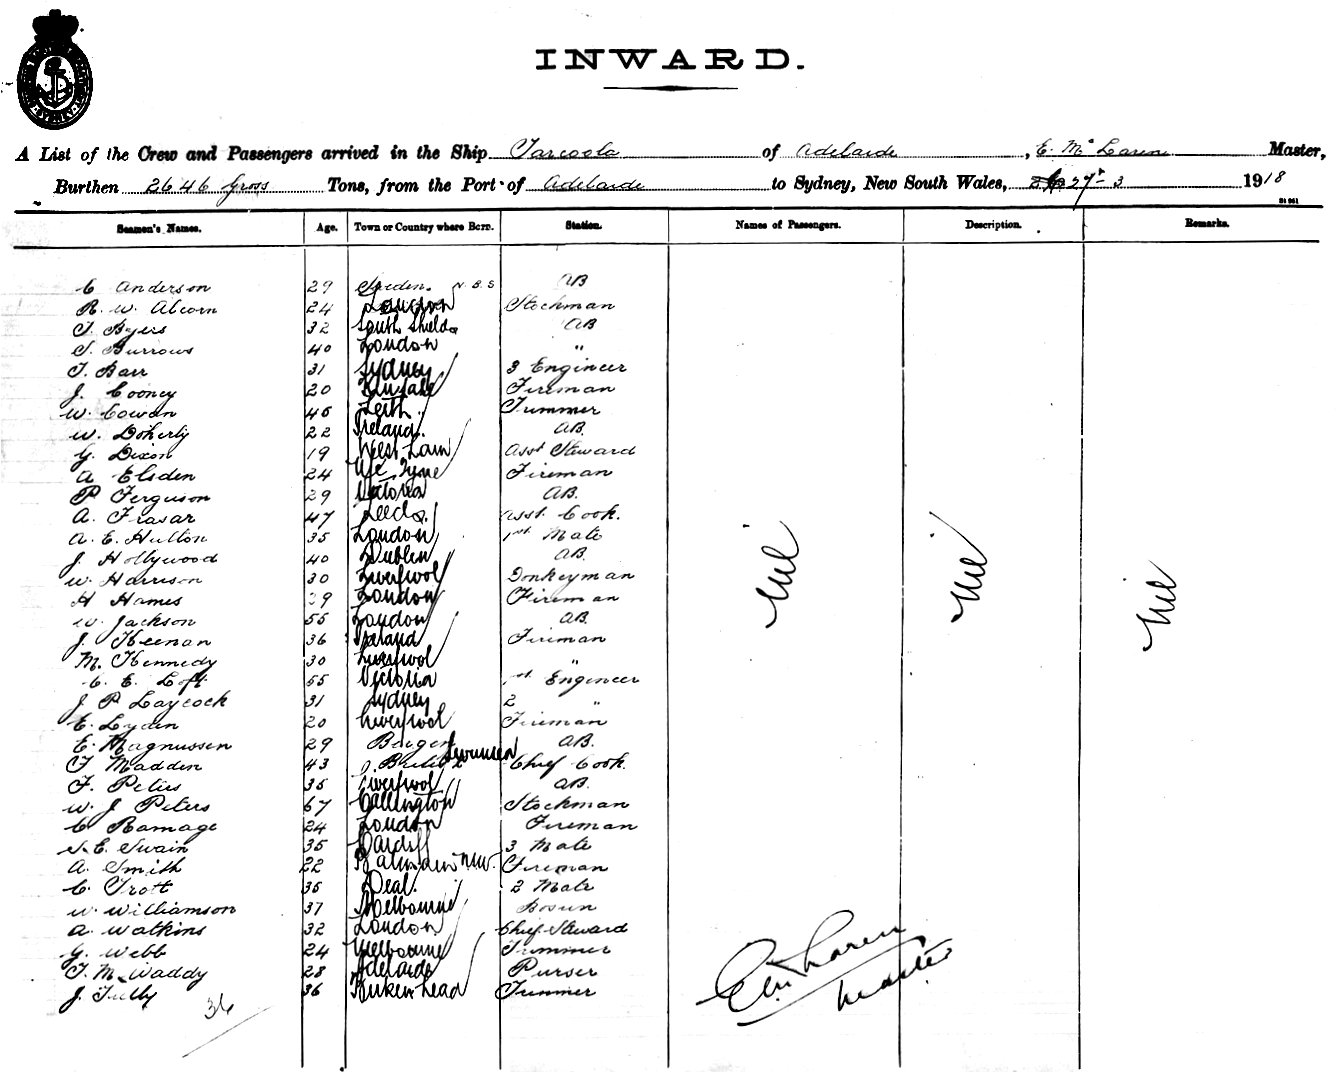 INWARD.
A List of the Crew and Passengers arrived in the Ship Tarcoola of Adelaide, E. Mc Laren Master,
Burthen 2646 Gross Tons, from the Port of Adelaide to Sydney, New South Wales, 27-3 1918
Seamen's Names. Age. Town or Country where Born. Station. Names of Passengers. Description. Remarks.
C Anderson 29 AB
R. W. Alcorn 24 London Stockman
T. Byers 32 South Shields AB
S. Burrows 40 London "
T. Barr 31 Sydney 3 Engineer
J. Cooney 20 Kinsale Fireman
W. Cowan 46 Leith. Trimmer
W. Doherty 22 Ireland. AB.
G. Dixon 19 West Ham Asst Steward
A Elsden 24 Tyne Fireman
P Ferguson 29 Victoria AB.
A. Frasar 47 Leeds. Asst. Cook.
A. E. Hulton 35 London 1st Mate
J. Hollywood 40 Dublin AB.
W. Harrison 30 Liverpool Donkeyman
H Hames 39 London Fireman
W. Jackson 55 London AB.
J. Keenan 36 Ireland Fireman
M. Kennedy 30 Liverpool "
C. E. Loft 55 Victoria 1st Engineer
J P Laycock 31 Sydney 2 "
E. Lyden 20 Liverpool Fireman
E. Magnussen 29 Bergen AB.
T Madden 43 Swansea Chief Cook.
F. Peters 35 Liverpool AB.
W. J Peters 67 Callington Stockman
C Ramage 24 London Fireman
S. E. Swain 35 Cardiff 3 Mate
A. Smith 22 Balmain NSW. Fireman
C. Trott 35 Deal. 2 Mate
W. Williamson 37 Melbourne Bosun
A. Watkins 32 London Chief Steward
G. Webb 24 Melbourne Trimmer
T. M. Waddy 28 Adelaide Purser
J. Tully 36 Birkenhead Trimmer
36
Nil
Nil
Nil
E Mc Laren
Master